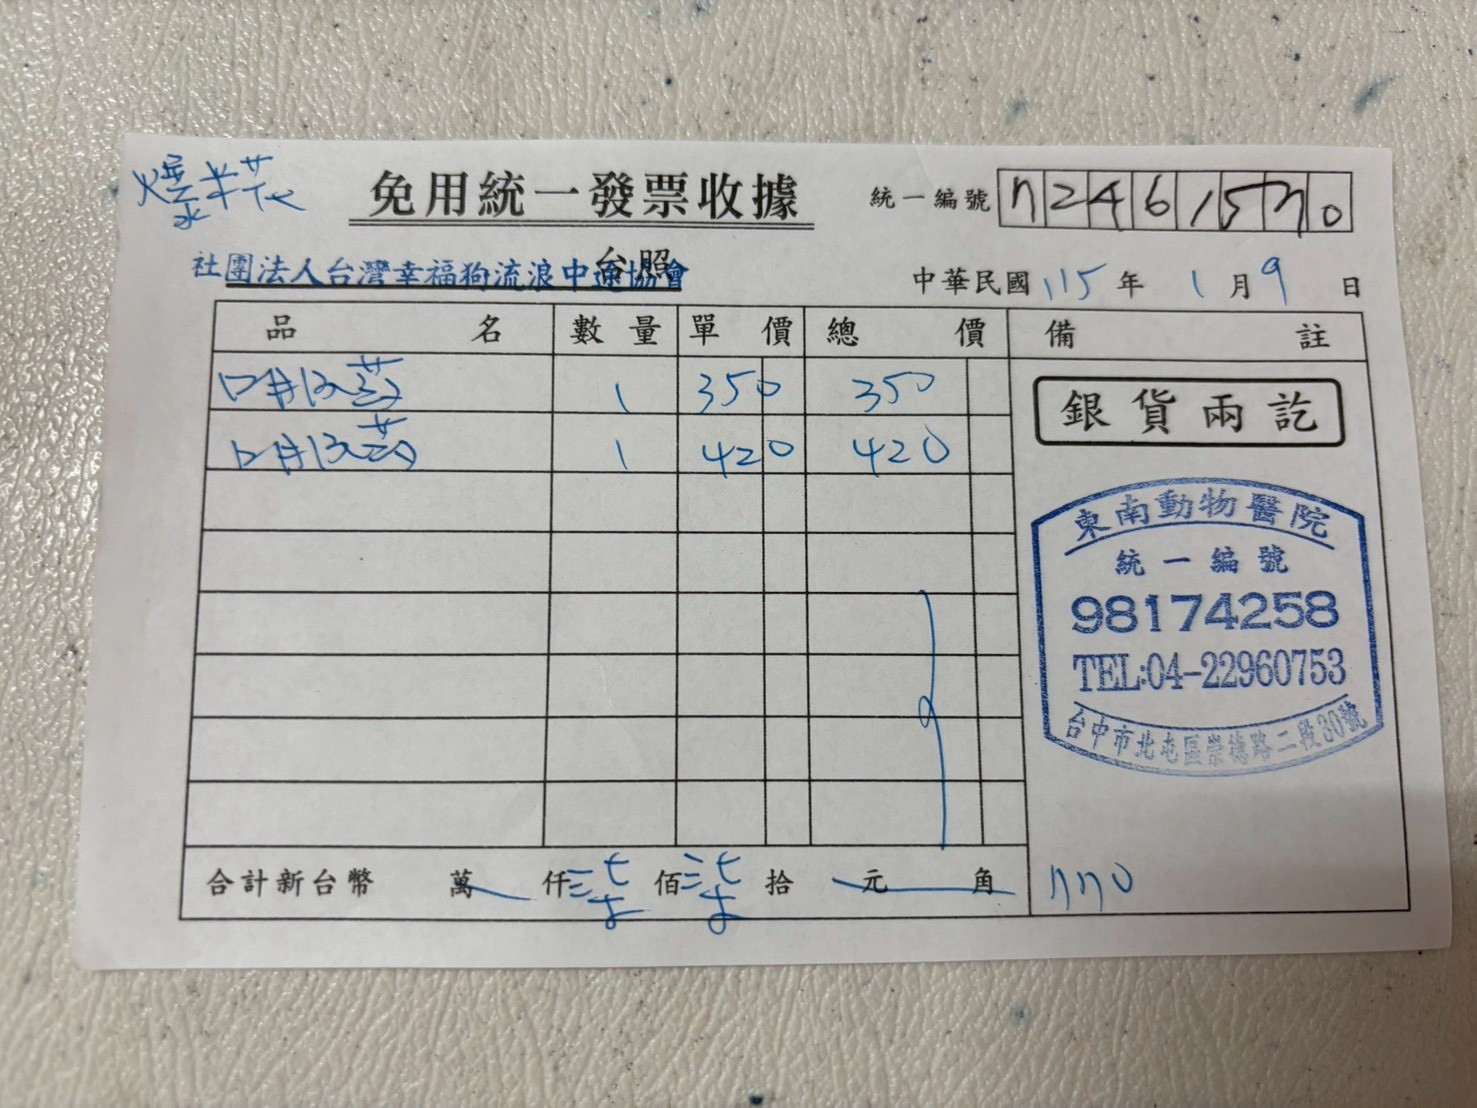 爆米花
免用統一發票收據
統一編號 72461570
社團法人台灣幸福狗流浪中途協會 台照
中華民國 115 年 1 月 9 日
品名 數量 單價 總價 備註
1 350 350
1 420 420
銀貨兩訖
東南動物醫院
統一編號
98174258
TEL:04-22960753
台中市北屯區崇德路二段30號
合計新台幣 萬 仟 柒 佰 柒 拾 元 角
770